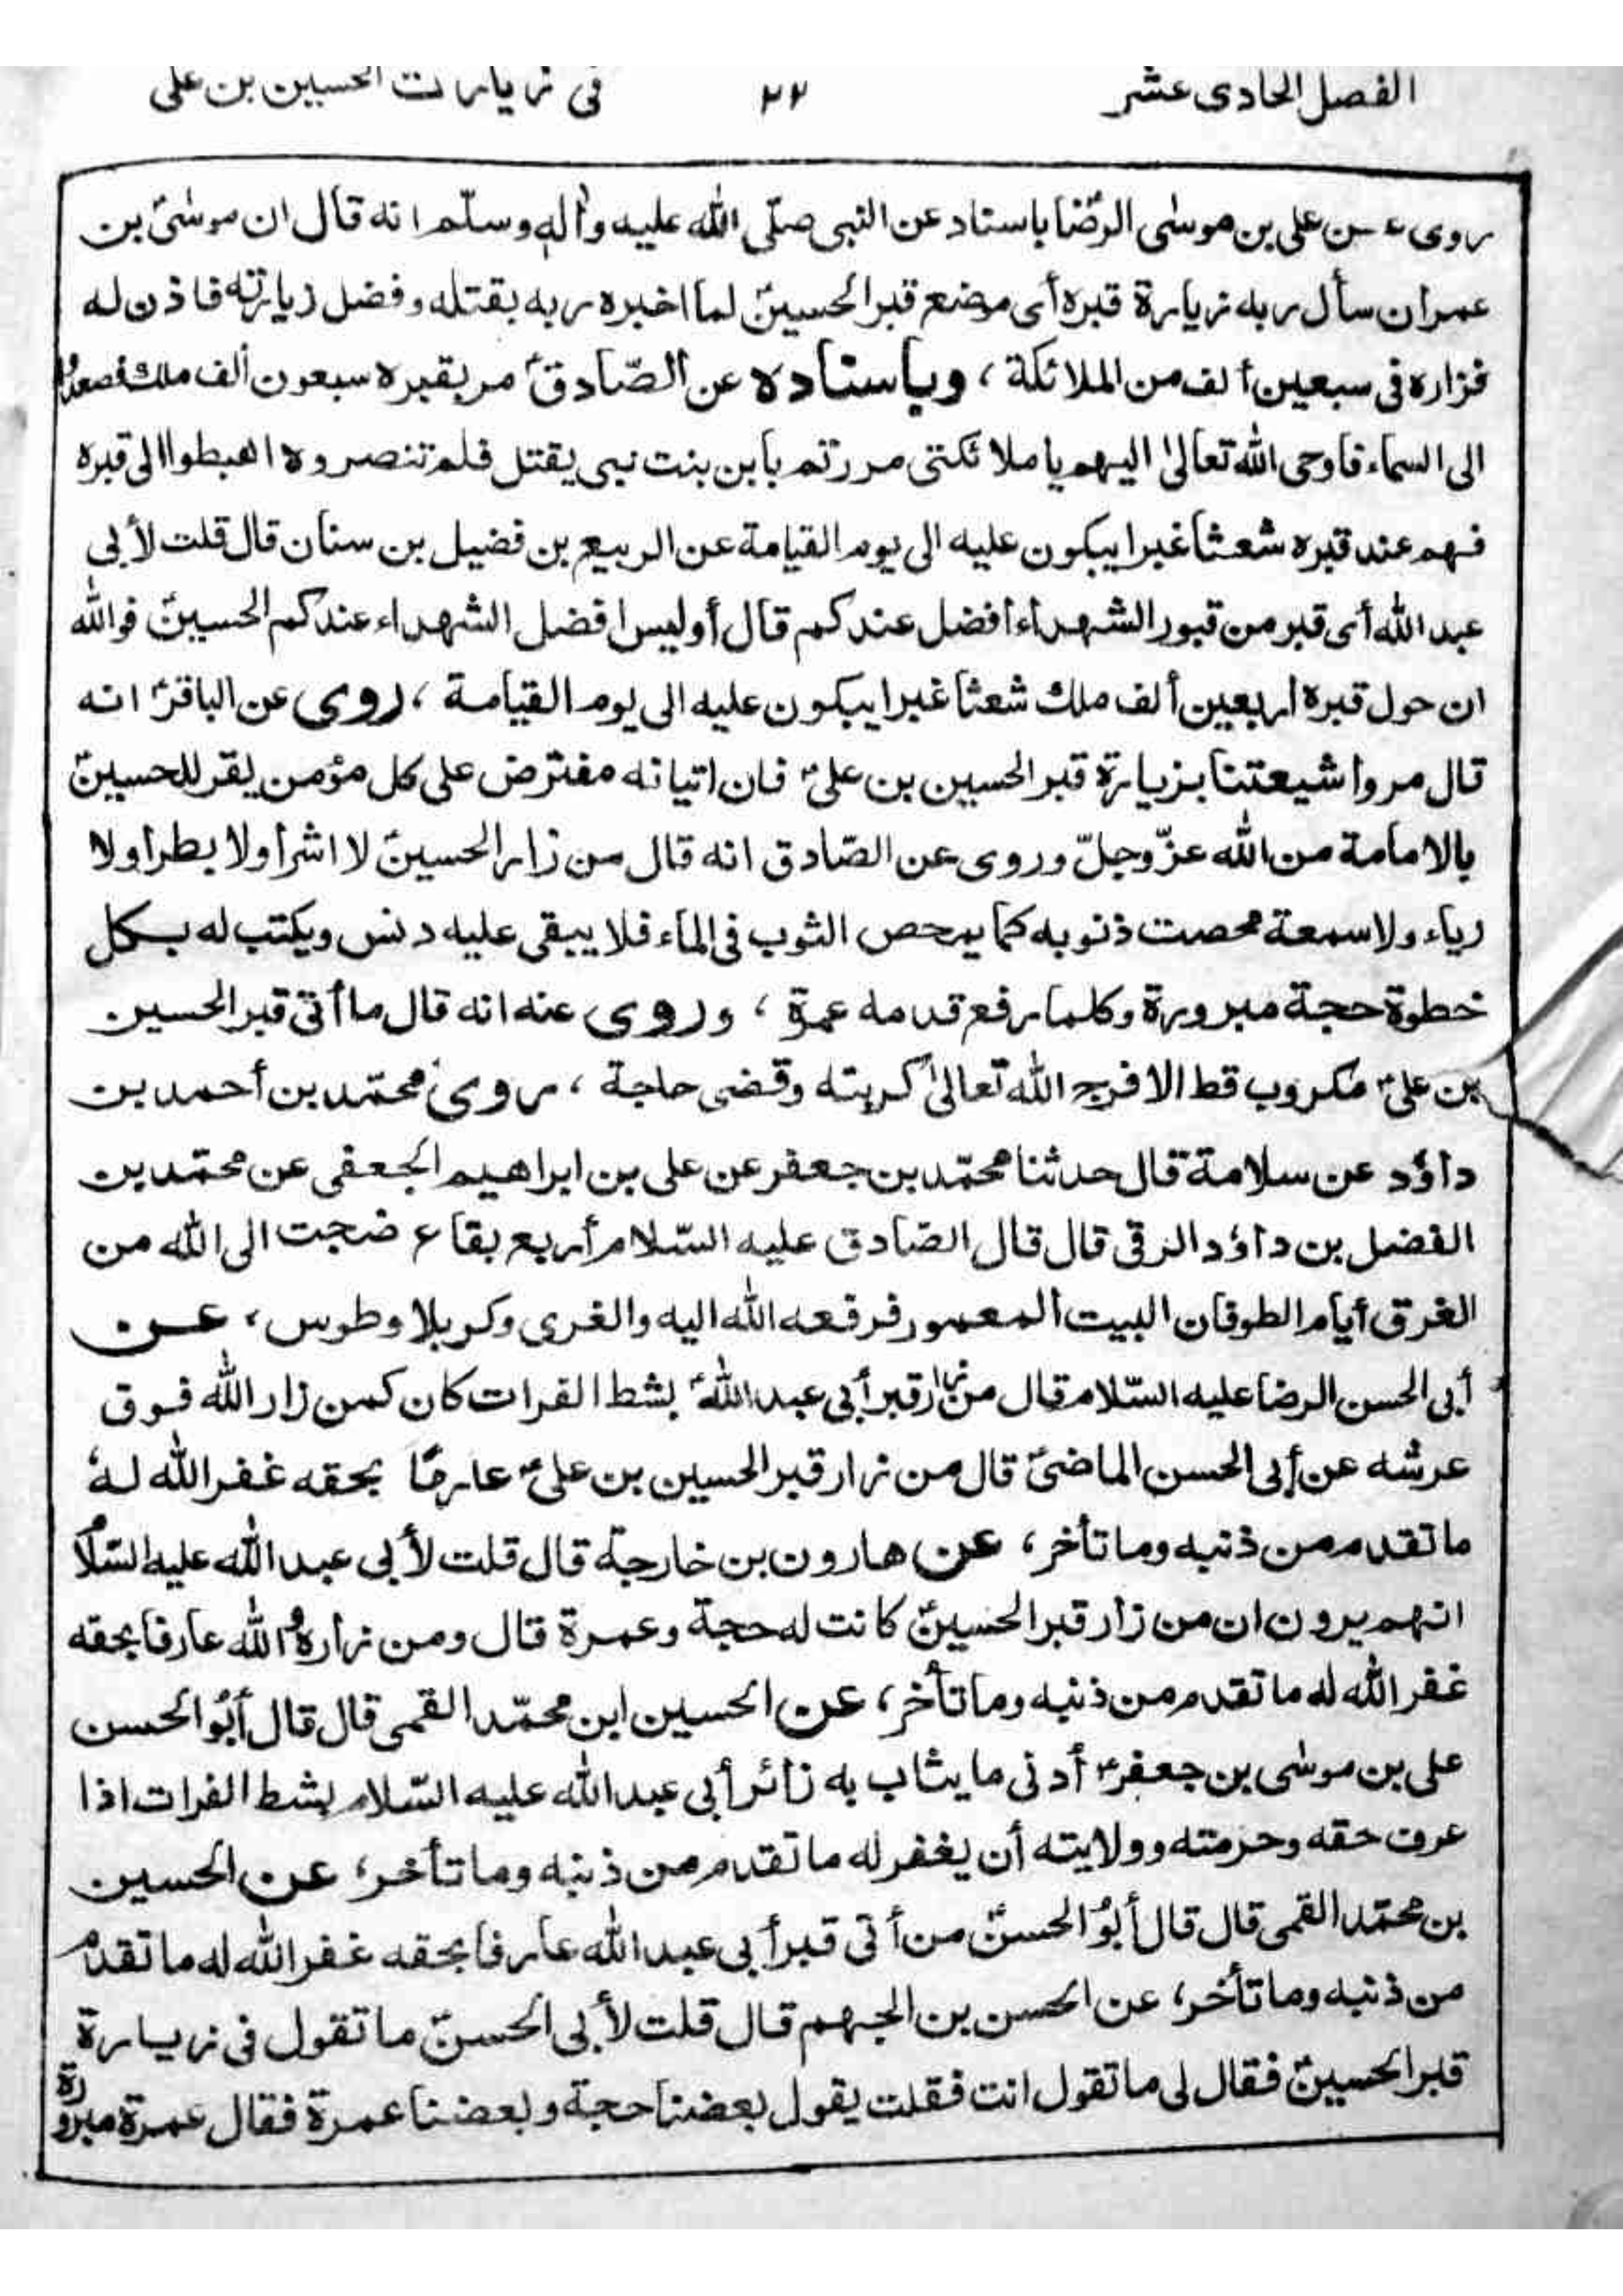 الفصل الحادی عشر ٢٢ فی زیارت الحسین بن علی
روی عن علی بن موسٰی الرضا باسناد عن النبی صلّی الله علیه واٰلهٖ وسلّم انه قال ان موسٰیؑ بن
عمران سأل ربه زیارة قبره أی موضع قبر الحسینؑ لما اخبره ربه بقتله وفضل زیارته فاذن له
فزاره فی سبعین ألف من الملائکة ، وباسناده عن الصّادقؑ مر بقبره سبعون ألف ملك فصعدوا
الی السماء فاوحی الله تعالیٰ الیهم یا ملائکتی مررتم بابن بنت نبی یقتل فلم تنصروه اهبطوا الی قبره
فهم عند قبره شعثا غبرا یبکون علیه الی یوم القیامة عن الربیع بن فضیل بن سنان قال قلت لأبی
عبد الله أی قبر من قبور الشهداء افضل عندکم قال أولیس افضل الشهداء عندکم الحسینؑ فوالله
ان حول قبره اربعین ألف ملك شعثا غبرا یبکون علیه الی یوم القیامة ، روی عن الباقرؑ انه
قال مروا شیعتنا بزیارة قبر الحسین بن علیؑ فان اتیانه مفترض علی کل مؤمن یقر للحسینؑ
بالامامة من الله عزّوجلّ وروی عن الصّادق انه قال من زار الحسینؑ لا اشرا ولا بطرا ولا
ریاء ولا سمعة محصت ذنوبه کما یمحص الثوب فی الماء فلا یبقی علیه دنس ویکتب له بکل
خطوة حجة مبرورة وکلما رفع قدمه عمرة ، وروی عنه انه قال ما أتی قبر الحسین
بن علیؑ مکروب قط الا فرج الله تعالیٰ کربته وقضی حاجة ، روی محمّد بن أحمد بن
داؤد عن سلامة قال حدثنا محمّد بن جعفر عن علی بن ابراهیم الجعفی عن محمّد بن
الفضل بن داؤد الرقی قال قال الصّادق علیه السّلام أربع بقاع ضجت الی الله من
الغرق أیام الطوفان البیت المعمور فرفعه الله الیه والغری وکربلا وطوس، عن
أبی الحسن الرضا علیه السّلام قال من زار قبر أبی عبد اللهؑ بشط الفرات کان کمن زار الله فوق
عرشه عن أبی الحسن الماضیؑ قال من زار قبر الحسین بن علیؑ عارفًا بحقه غفر الله له
ما تقدم من ذنبه وما تأخر، عن هارون بن خارجة قال قلت لأبی عبد الله علیه السّلام
انهم یرون ان من زار قبر الحسینؑ کانت له حجة وعمرة قال ومن زاره والله عارفا بحقه
غفر الله له ما تقدم من ذنبه وما تأخر، عن الحسین ابن محمّد القمی قال قال أبُو الحسن
علی بن موسٰی بن جعفرؑ أدنی ما یثاب به زائر أبی عبد الله علیه السّلام بشط الفرات اذا
عرف حقه وحرمته وولایته أن یغفر له ما تقدم من ذنبه وما تأخر، عن الحسین
بن محمّد القمی قال قال أبُو الحسنؑ من أتی قبر أبی عبد الله عارفا بحقه غفر الله له ما تقدم
من ذنبه وما تأخر، عن الحسن بن الجهم قال قلت لأبی الحسنؑ ما تقول فی زیارة
قبر الحسینؑ فقال لی ما تقول انت فقلت یقول بعضنا حجة وبعضنا عمرة فقال عمرة مبرورة